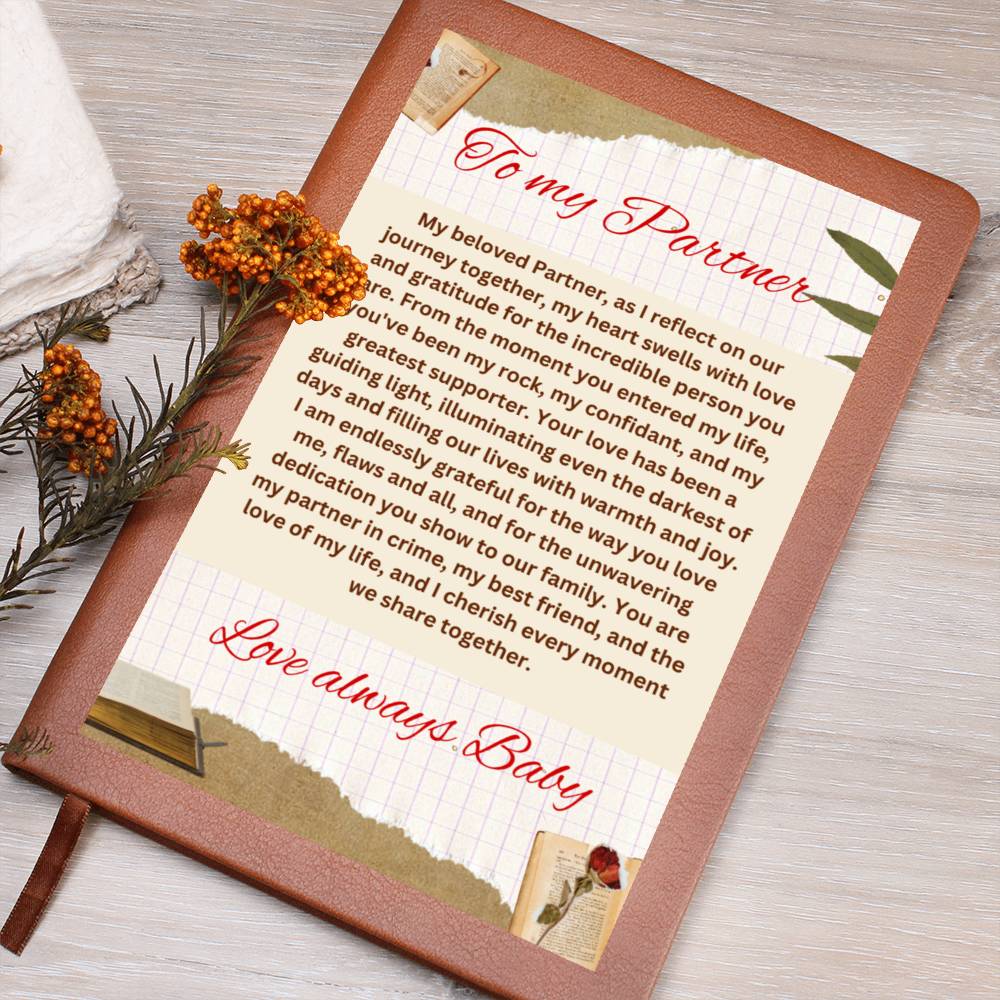 To my Partner
My beloved Partner, as I reflect on our
journey together, my heart swells with love
and gratitude for the incredible person you
are. From the moment you entered my life,
you've been my rock, my confidant, and my
greatest supporter. Your love has been a
guiding light, illuminating even the darkest of
days and filling our lives with warmth and joy.
I am endlessly grateful for the way you love
me, flaws and all, and for the unwavering
dedication you show to our family. You are
my partner in crime, my best friend, and the
love of my life, and I cherish every moment
we share together.
Love always, Baby